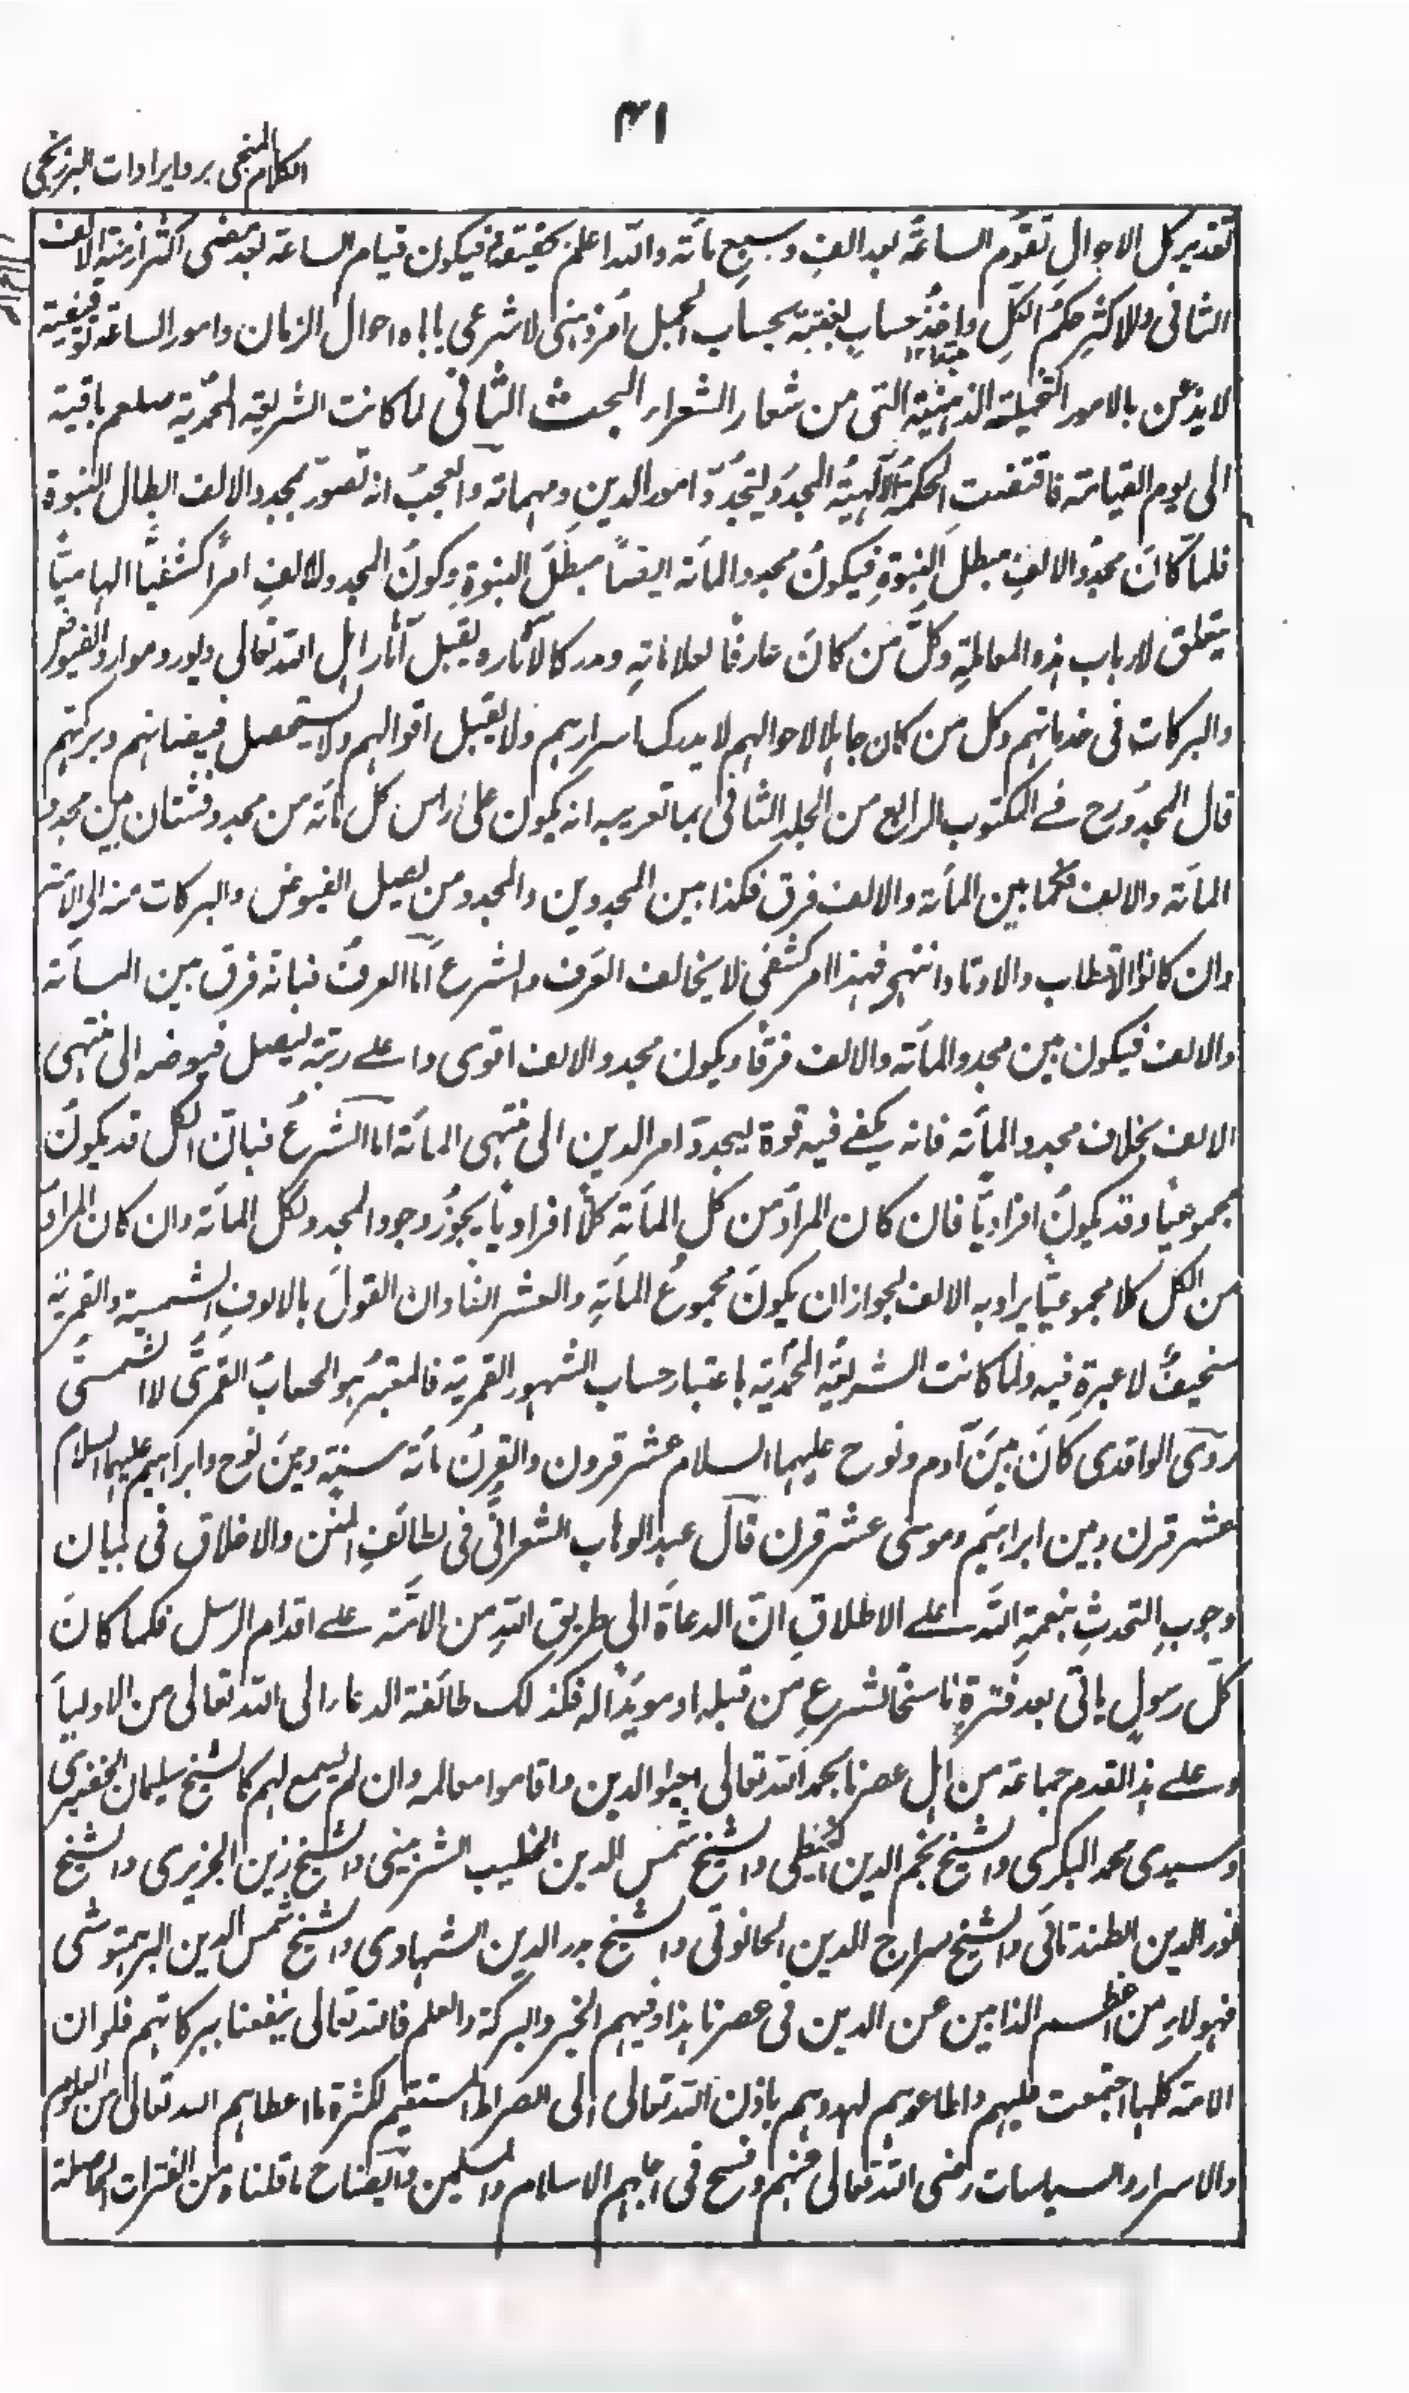 ۴۱
الكلام المنجى برد ايرادات البرزنجى
تقدير كل الاحوالِ تقوم الساعة بعد الفٍ وسبع مأته والله اعلم بحقيقته فيكون قيام الساعة بعد مضى اكثر ازمنة الالف
الثانى وللاكثر حكم الكلِ واخذُ حسابٍ بغتبة بحساب الجمل امر ذهنى لا شرعى ياباه احوال الزمان وامور الساعة توقيفية
لا يذعن بالامور التخيلية الذهنية التى من شعار الشعراء البحث الثانى لما كانت الشريعة المحمدية صلعم باقية
الى يوم القيامة فاقتضتِ الحكمةُ الالٰهيةُ المجددَ ليتجدّد امور الدينِ ومهماته والعجبُ انه تصوّر مجدد الالف ابطال النبوة
فلما كانَ مجدّد الالفِ مبطلَ النبوةِ فيكونُ مجدد المأته ايضاً مبطلَ النبوةِ وكونُ المجدد للالفِ امراً كشفياً الهامياً
يتعلق لارباب هذه المعاملةِ وكلّ من كانَ عارفًا لعلاماتهِ ومدركا لآثاره يقبل آثار اہل الله تعالى ويورد موارد الفيوض
والبركات فى خدماتہم وكل من كان جاہلا لاحوالہم لا يدرك اسرارہم ولا يقبل اقوالہم ولا يستحصل فيضانہم وبركتہم
قال المجدد رح فے المكتوب الرابع من الجلد الثانى بما تعريبه انه يكون على راس كل مأته من مجدد فشتان بين مجدد
المأته والالف فكما بين المأته والالف فرق فكذا بين المجددين والمجدد من يصل الفيوض والبركات منه الى الامة
وان كانوا الاقطاب والاوتاد انتهى فہذا امر كشفى لا يخالف العرف والشرع اما العرفُ فبانه فرق بين المأته
والالف فيكون بين مجدد المأته والالف فرقًا ويكون مجدد الالف اقوى واعلے رتبة ليصل فيوضه الى منتهى
الالف بخلاف مجدد المأته فانه يكفے فيه قوة ليجدد امر الدين الى منتهى المأته اما الشرعُ فبانّ الكل قد يكونُ
مجموعيا وقد يكونُ افراديًا فان كان المرادُ من كل المأتهِ كلًا افراديًا يجوزُ وجود المجدد لكل المأته وان كان المراد
من الكل كلا مجموعيًا يراد به الالف لجواز ان يكونَ مجموعُ المأتهِ والعشر الفا وان القولَ بالالوفِ الشمسية والقمرية
سخيفٌ لا عبرة فيه ولما كانت الشريعةُ المحمّدية باعتبار حساب الشهور القمرية فالمعتبر ہو الحسابُ القمرىُّ لا الشمسى
روى الواقدى كانَ بينَ آدم ونوح عليہما السلام عشر قرون والقرنُ مأته سنةٍ وبين نوح وابراہيم عليہما السلام
عشر قرن وبين ابراہيم وموسى عشر قرن قال عبد الوہاب الشعرانىُّ فى لطائفِ المنن والاخلاق فى بيان
وجوبِ التحدثِ بنعمةِ الله علے الاطلاقِ انّ الدعاةَ الى طريق اللهِ من الائمة علے اقدام الرسل فكما كانَ
كلّ رسولٍ ياتى بعد فترةٍ ناسخًا لشرعِ من قبله او مويدًا له فكذلك طائفة الدعاء الى الله تعالى من الاولياءَ
وعلے ہذا القدم جماعة من اہل عصرنا بحمد الله تعالى احيوا الدين واقاموا معالمه وان لم يسمع لہم كالشيخ سليمان الخضيرى
وسيدى محمد البكرى والشيخ نجم الدين الغيطى والشيخ شمس الدين الخطيب الشربينى والشيخ زين الجزيرى والشيخ
نور الدين الطندتائى والشيخ سراج الدين الحانوتى والشيخ بدر الدين الشهاوى والشيخ شمس الدين البرہمتوشى
فہولاءِ من اعظم الذابين عن الدين فى عصرنا ہذا وفيہم الخير والبركة والعلم فالله تعالى ينفعنا ببركاتہم فلو ان
الامة كلہا اجتمعت عليہم واطاعوہم لہدوہم باذن الله تعالى الى الصراط المستقيم لكثرة ما اعطاہم الله تعالى من العلوم
والاسرار والسياسات رضى الله تعالى عنہم وفسح فى اجلہم الاسلام والمسلمين وايضاح ما قلناه من الفترات الحاصلة